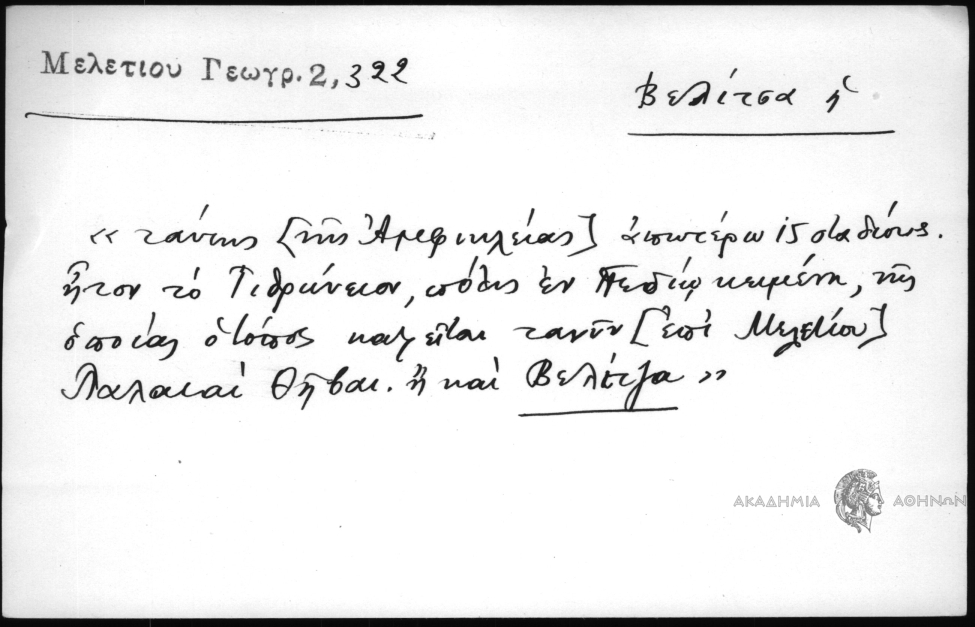 Μελετιου Γεωγρ. 2, 322
Βελίτσα ἡ
«ταύτης [τῆς Ἀμφικλείας] ἀπωτέρω 15 σταδίους.
ἦτον τὸ Τιθρώνειον, πόλις ἐν Πεδίῳ κειμένη, τῆς
ὁποίας ὁ τόπος καλεῖται τανῦν [ἐπὶ Μελετίου]
Παλαιαὶ Θῆβαι. ἢ καὶ Βελίτζα»
ΑΚΑΔΗΜΙΑ ΑΘΗΝΩΝ